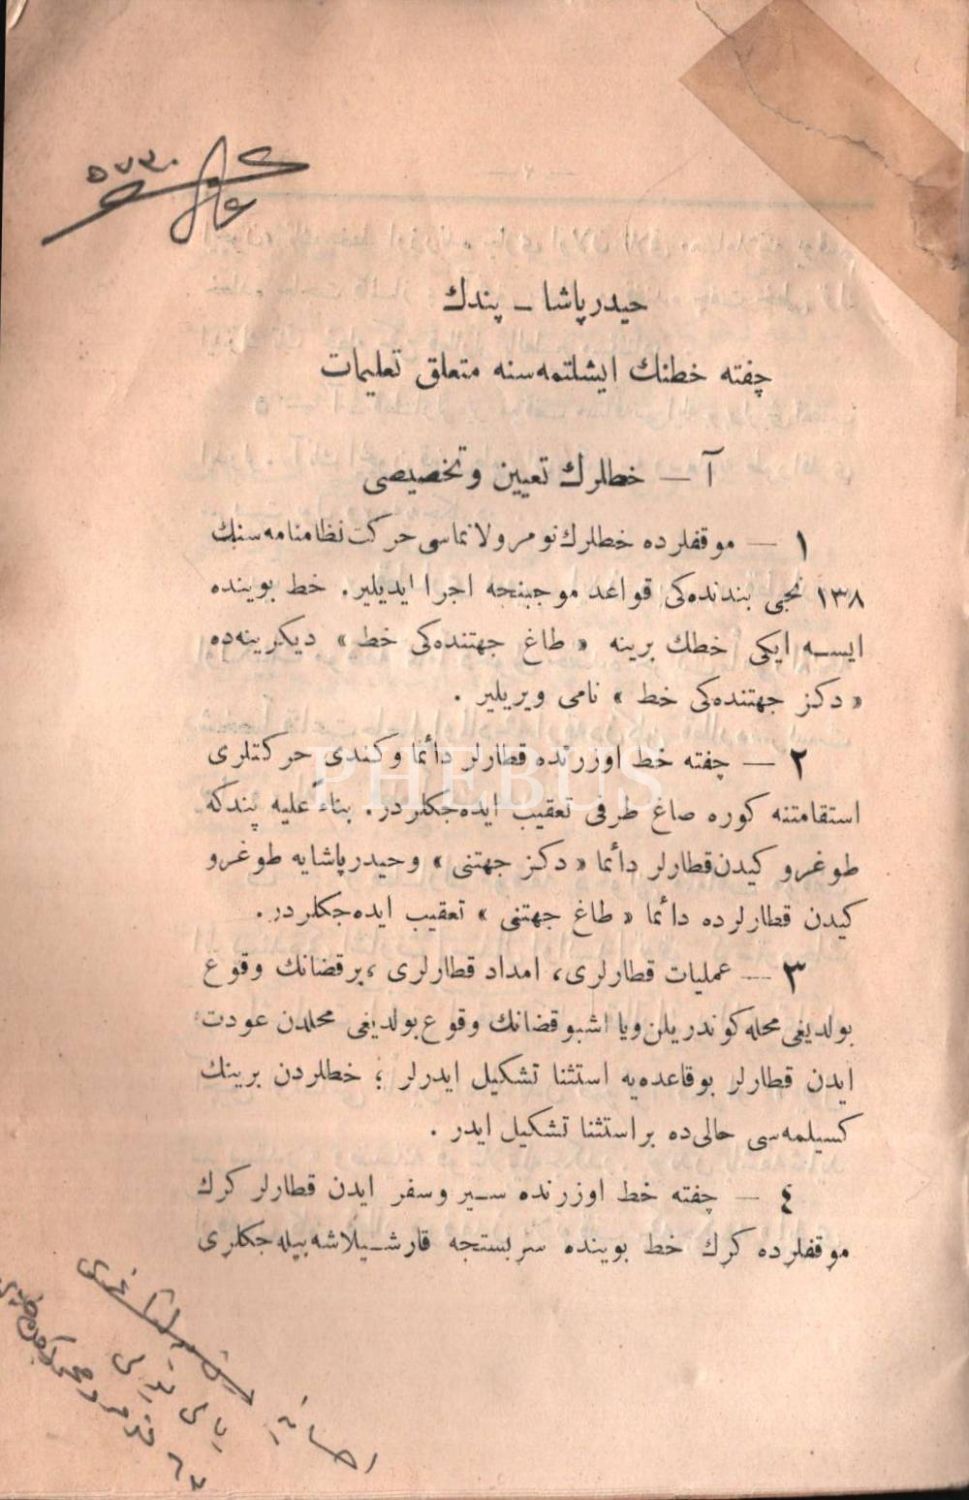 حيدرپاشا ـ پندك
چفته خطنك ايشلتمه‌سنه متعلق تعليمات
آ — خطلرك تعيين وتخصيصى
١ — موقفلرده خطلرك نومرولانماسى حركت نظامنامه‌سنك
١٣٨ نجى بندنده‌كى قواعد موجبنجه اجرا ايديلير. خط بوينده
ايسـه ايكى خطك برينه « طاغ جهتنده‌كى خط » ديكرينه‌ده
« دكز جهتنده‌كى خط » نامى ويريلير .
٢ — چفته خط اوزرنده قطارلر دائما وكندى حركتلرى
PHEBUS
استقامتنه كوره صاغ طرفى تعقيب ايده‌جكلردر. بناءً عليه پندكه
طوغرو كيدن قطارلر دائما « دكز جهتنى » وحيدرپاشايه طوغرو
كيدن قطارلرده دائما « طاغ جهتنى » تعقيب ايده‌جكلردر.
٣ — عمليات قطارلرى، امداد قطارلرى ، برقضانك وقوع
بولديغى محله كوندريلن ويا اشبو قضانك وقوع بولديغى محلدن عودت
ايدن قطارلر بوقاعده‌يه استثنا تشكيل ايدرلر ؛ خطلردن برينك
كسيلمه‌سى حالى‌ده براستثنا تشكيل ايدر .
٤ — چفته خط اوزرنده سـير وسفر ايدن قطارلر كرك
موقفلرده كرك خط بوينده سربستجه قارشـيلاشه‌بيله‌جكلرى